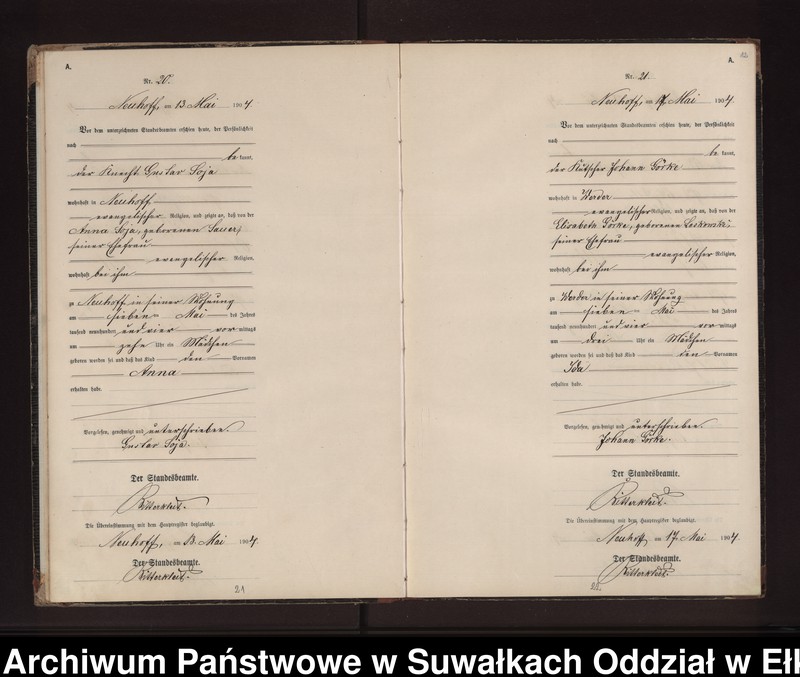 A.
Nr. 20.
Neuhoff, am 13 Mai 1904.
Vor dem unterzeichneten Standesbeamten erschien heute, der Persönlichkeit
nach
be kannt,
der Knecht Gustav Soja
wohnhaft in Neuhoff
evangelischer Religion, und zeigte an, daß von der
Anna Soja, geborenen Sauer,
seiner Ehefrau
evangelischer Religion,
wohnhaft bei ihm
zu Neuhoff in seiner Wohnung
am sieben ten Mai des Jahres
tausend neunhundert und vier vor mittags
um zehn Uhr ein Mädchen
geboren worden sei und daß das Kind den Vornamen
Anna
erhalten habe.
Vorgelesen, genehmigt und unterschrieben.
Gustav Soja.
Der Standesbeamte.
Ritterkleit.
Die Übereinstimmung mit dem Hauptregister beglaubigt.
Neuhoff, am 13. Mai 1904.
Der Standesbeamte.
Ritterkleit.
21
A.
Nr. 21.
Neuhoff, am 17. Mai 1904.
Vor dem unterzeichneten Standesbeamten erschien heute, der Persönlichkeit
nach
be kannt,
der Kutscher Johann Görke
wohnhaft in Werder
evangelischer Religion, und zeigte an, daß von der
Elisabeth Görke, geborenen
seiner Ehefrau
evangelischer Religion,
wohnhaft bei ihm
zu Werder in seiner Wohnung
am sieben ten Mai des Jahres
tausend neunhundert und vier vor mittags
um drei Uhr ein Mädchen
geboren worden sei und daß das Kind den Vornamen
Ida
erhalten habe.
Vorgelesen, genehmigt und unterschrieben.
Johann Görke.
Der Standesbeamte.
Ritterkleit.
Die Übereinstimmung mit dem Hauptregister beglaubigt.
Neuhoff, am 17. Mai 1904.
Der Standesbeamte.
Ritterkleit.
Archiwum Państwowe w Suwałkach Oddział w Ełk